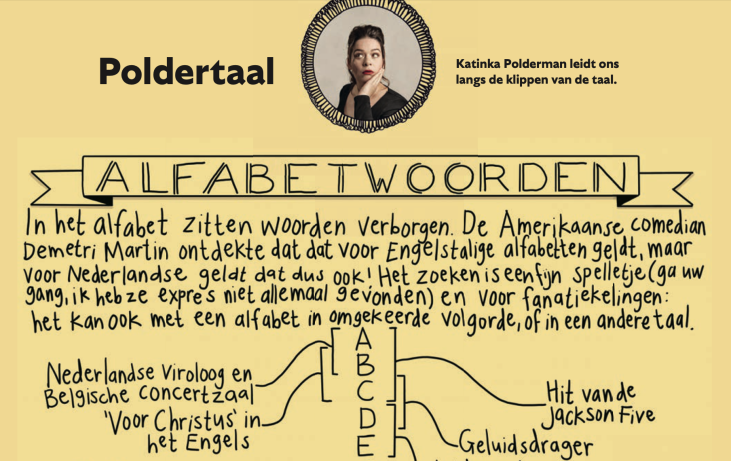 Poldertaal
Katinka Polderman leidt ons
langs de klippen van de taal.
ALFABETWOORDEN
In het alfabet zitten woorden verborgen. De Amerikaanse comedian
Demetri Martin ontdekte dat dat voor Engelstalige alfabetten geldt, maar
voor Nederlandse geldt dat dus ook! Het zoeken is een fijn spelletje (ga uw
gang, ik heb ze expres niet allemaal gevonden) en voor fanatiekelingen:
het kan ook met een alfabet in omgekeerde volgorde, of in een andere taal.
A
B
C
D
E
Nederlandse viroloog en
Belgische concertzaal
'Voor Christus' in
het Engels
Hit van de
Jackson Five
Geluidsdrager